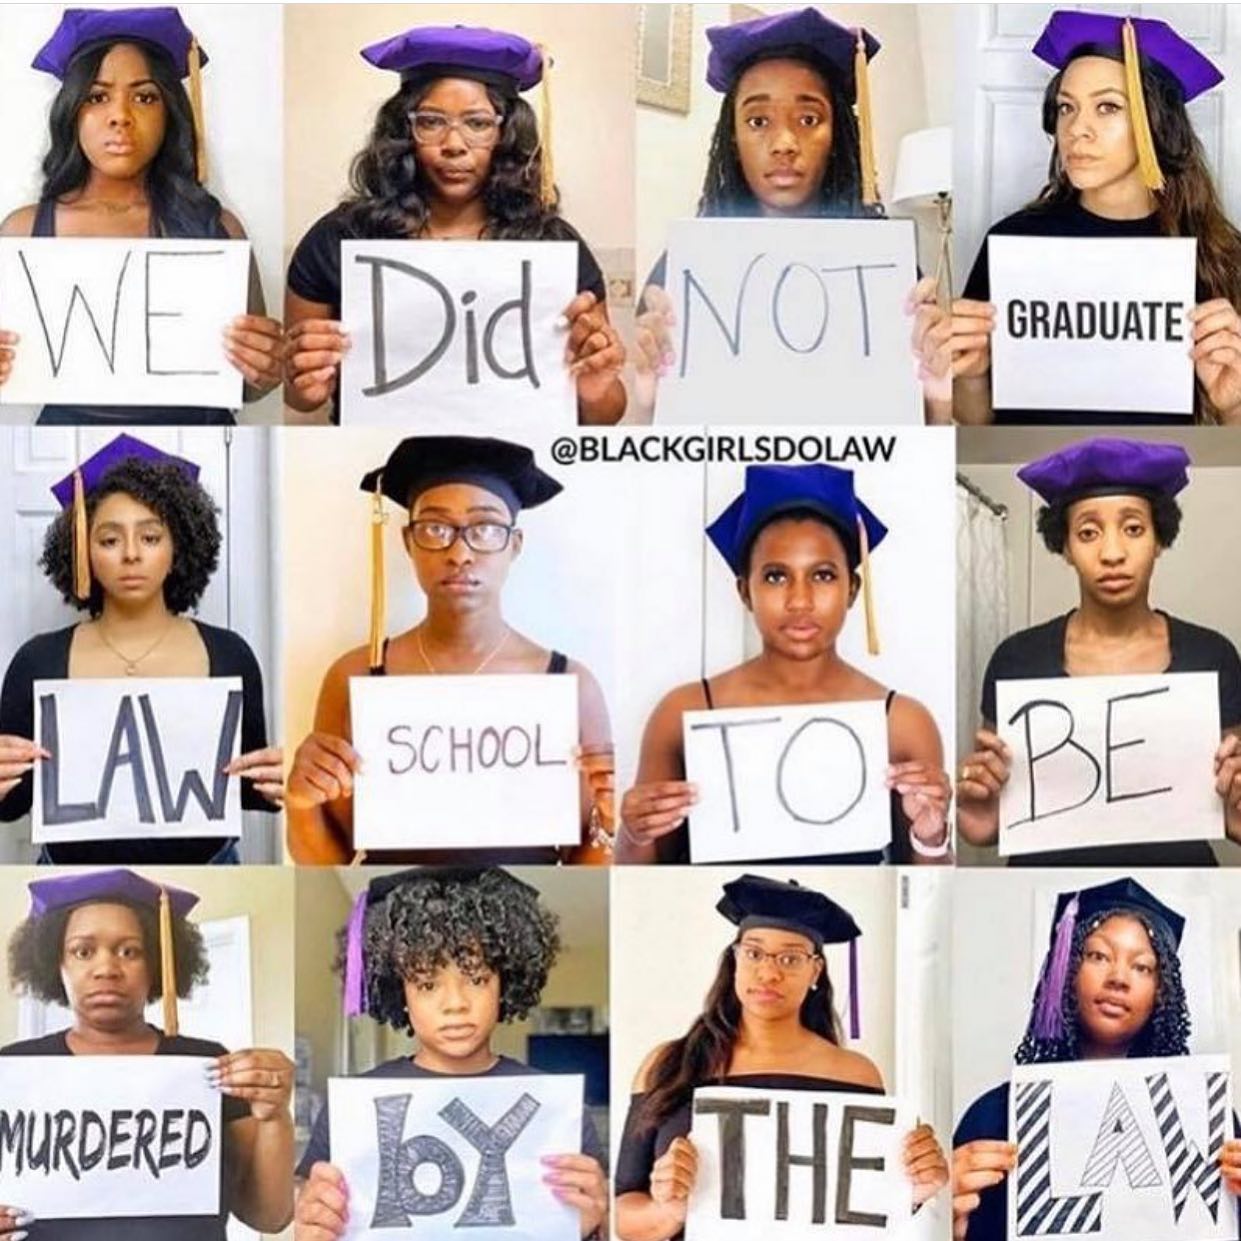 WE
Did
NOT
GRADUATE
@BLACKGIRLSDOLAW
LAW
SCHOOL
TO
BE
MURDERED
by
THE
LAW